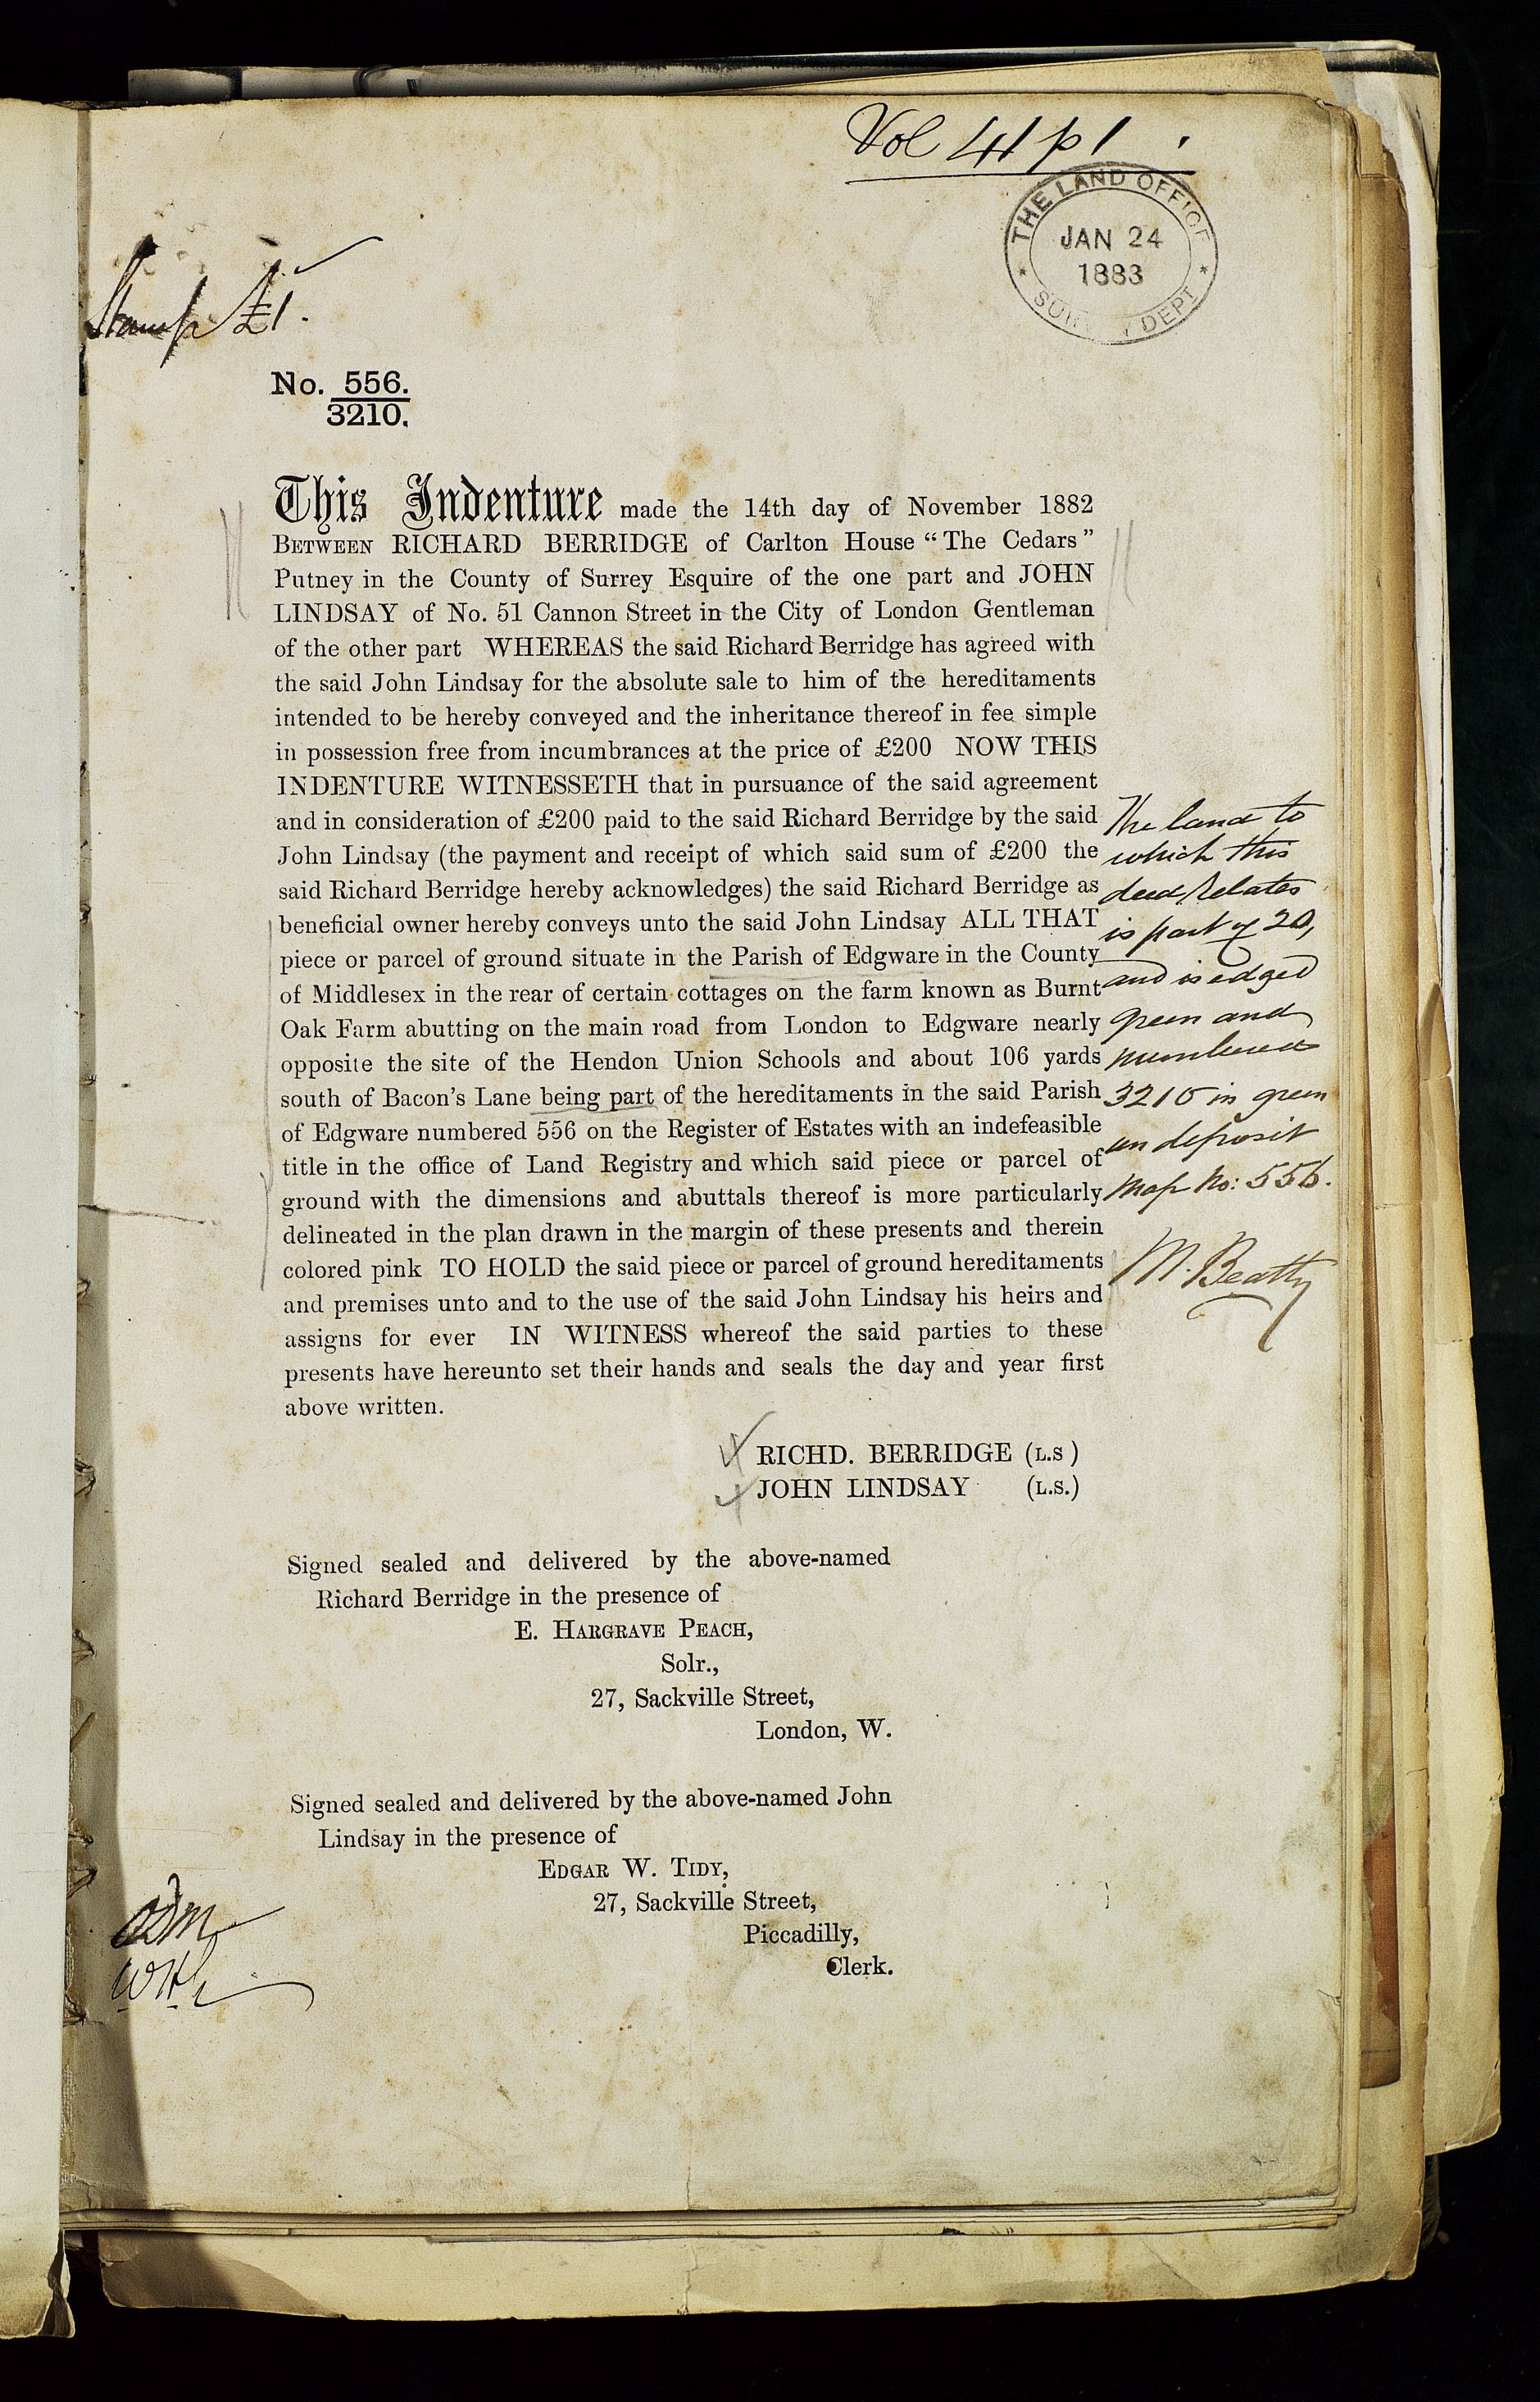 Vol 41 p 1
THE LAND OFFICE
JAN 24
1883
DEPT
Stamp £1.
No. 556.
3210.
This Indenture made the 14th day of November 1882
BETWEEN RICHARD BERRIDGE of Carlton House “The Cedars”
Putney in the County of Surrey Esquire of the one part and JOHN
LINDSAY of No. 51 Cannon Street in the City of London Gentleman
of the other part WHEREAS the said Richard Berridge has agreed with
the said John Lindsay for the absolute sale to him of the hereditaments
intended to be hereby conveyed and the inheritance thereof in fee simple
in possession free from incumbrances at the price of £200 NOW THIS
INDENTURE WITNESSETH that in pursuance of the said agreement
and in consideration of £200 paid to the said Richard Berridge by the said
John Lindsay (the payment and receipt of which said sum of £200 the
said Richard Berridge hereby acknowledges) the said Richard Berridge as
beneficial owner hereby conveys unto the said John Lindsay ALL THAT
piece or parcel of ground situate in the Parish of Edgware in the County
of Middlesex in the rear of certain cottages on the farm known as Burnt
Oak Farm abutting on the main road from London to Edgware nearly
opposite the site of the Hendon Union Schools and about 106 yards
south of Bacon's Lane being part of the hereditaments in the said Parish
of Edgware numbered 556 on the Register of Estates with an indefeasible
title in the office of Land Registry and which said piece or parcel of
ground with the dimensions and abuttals thereof is more particularly
delineated in the plan drawn in the margin of these presents and therein
colored pink TO HOLD the said piece or parcel of ground hereditaments
and premises unto and to the use of the said John Lindsay his heirs and
assigns for ever IN WITNESS whereof the said parties to these
presents have hereunto set their hands and seals the day and year first
above written.
The land to
which this
deed relates
is part of 20,
and is edged
green and
numbered
3210 in green
on deposit
Map No: 556.
M. Beatty
RICHD. BERRIDGE (L.S)
JOHN LINDSAY (L.S.)
Signed sealed and delivered by the above-named
Richard Berridge in the presence of
E. HARGRAVE PEACH,
Solr.,
27, Sackville Street,
London, W.
Signed sealed and delivered by the above-named John
Lindsay in the presence of
EDGAR W. TIDY,
27, Sackville Street,
Piccadilly,
Clerk.